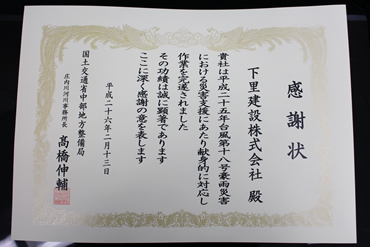 感謝状
下里建設株式会社 殿
貴社は平成二十五年台風第十八号豪雨災害
における災害支援にあたり献身的に対応し
作業を完遂されました
その功績は誠に顕著であります
ここに深く感謝の意を表します
平成二十六年二月十三日
国土交通省中部地方整備局
庄内川河川事務所長
高橋伸輔